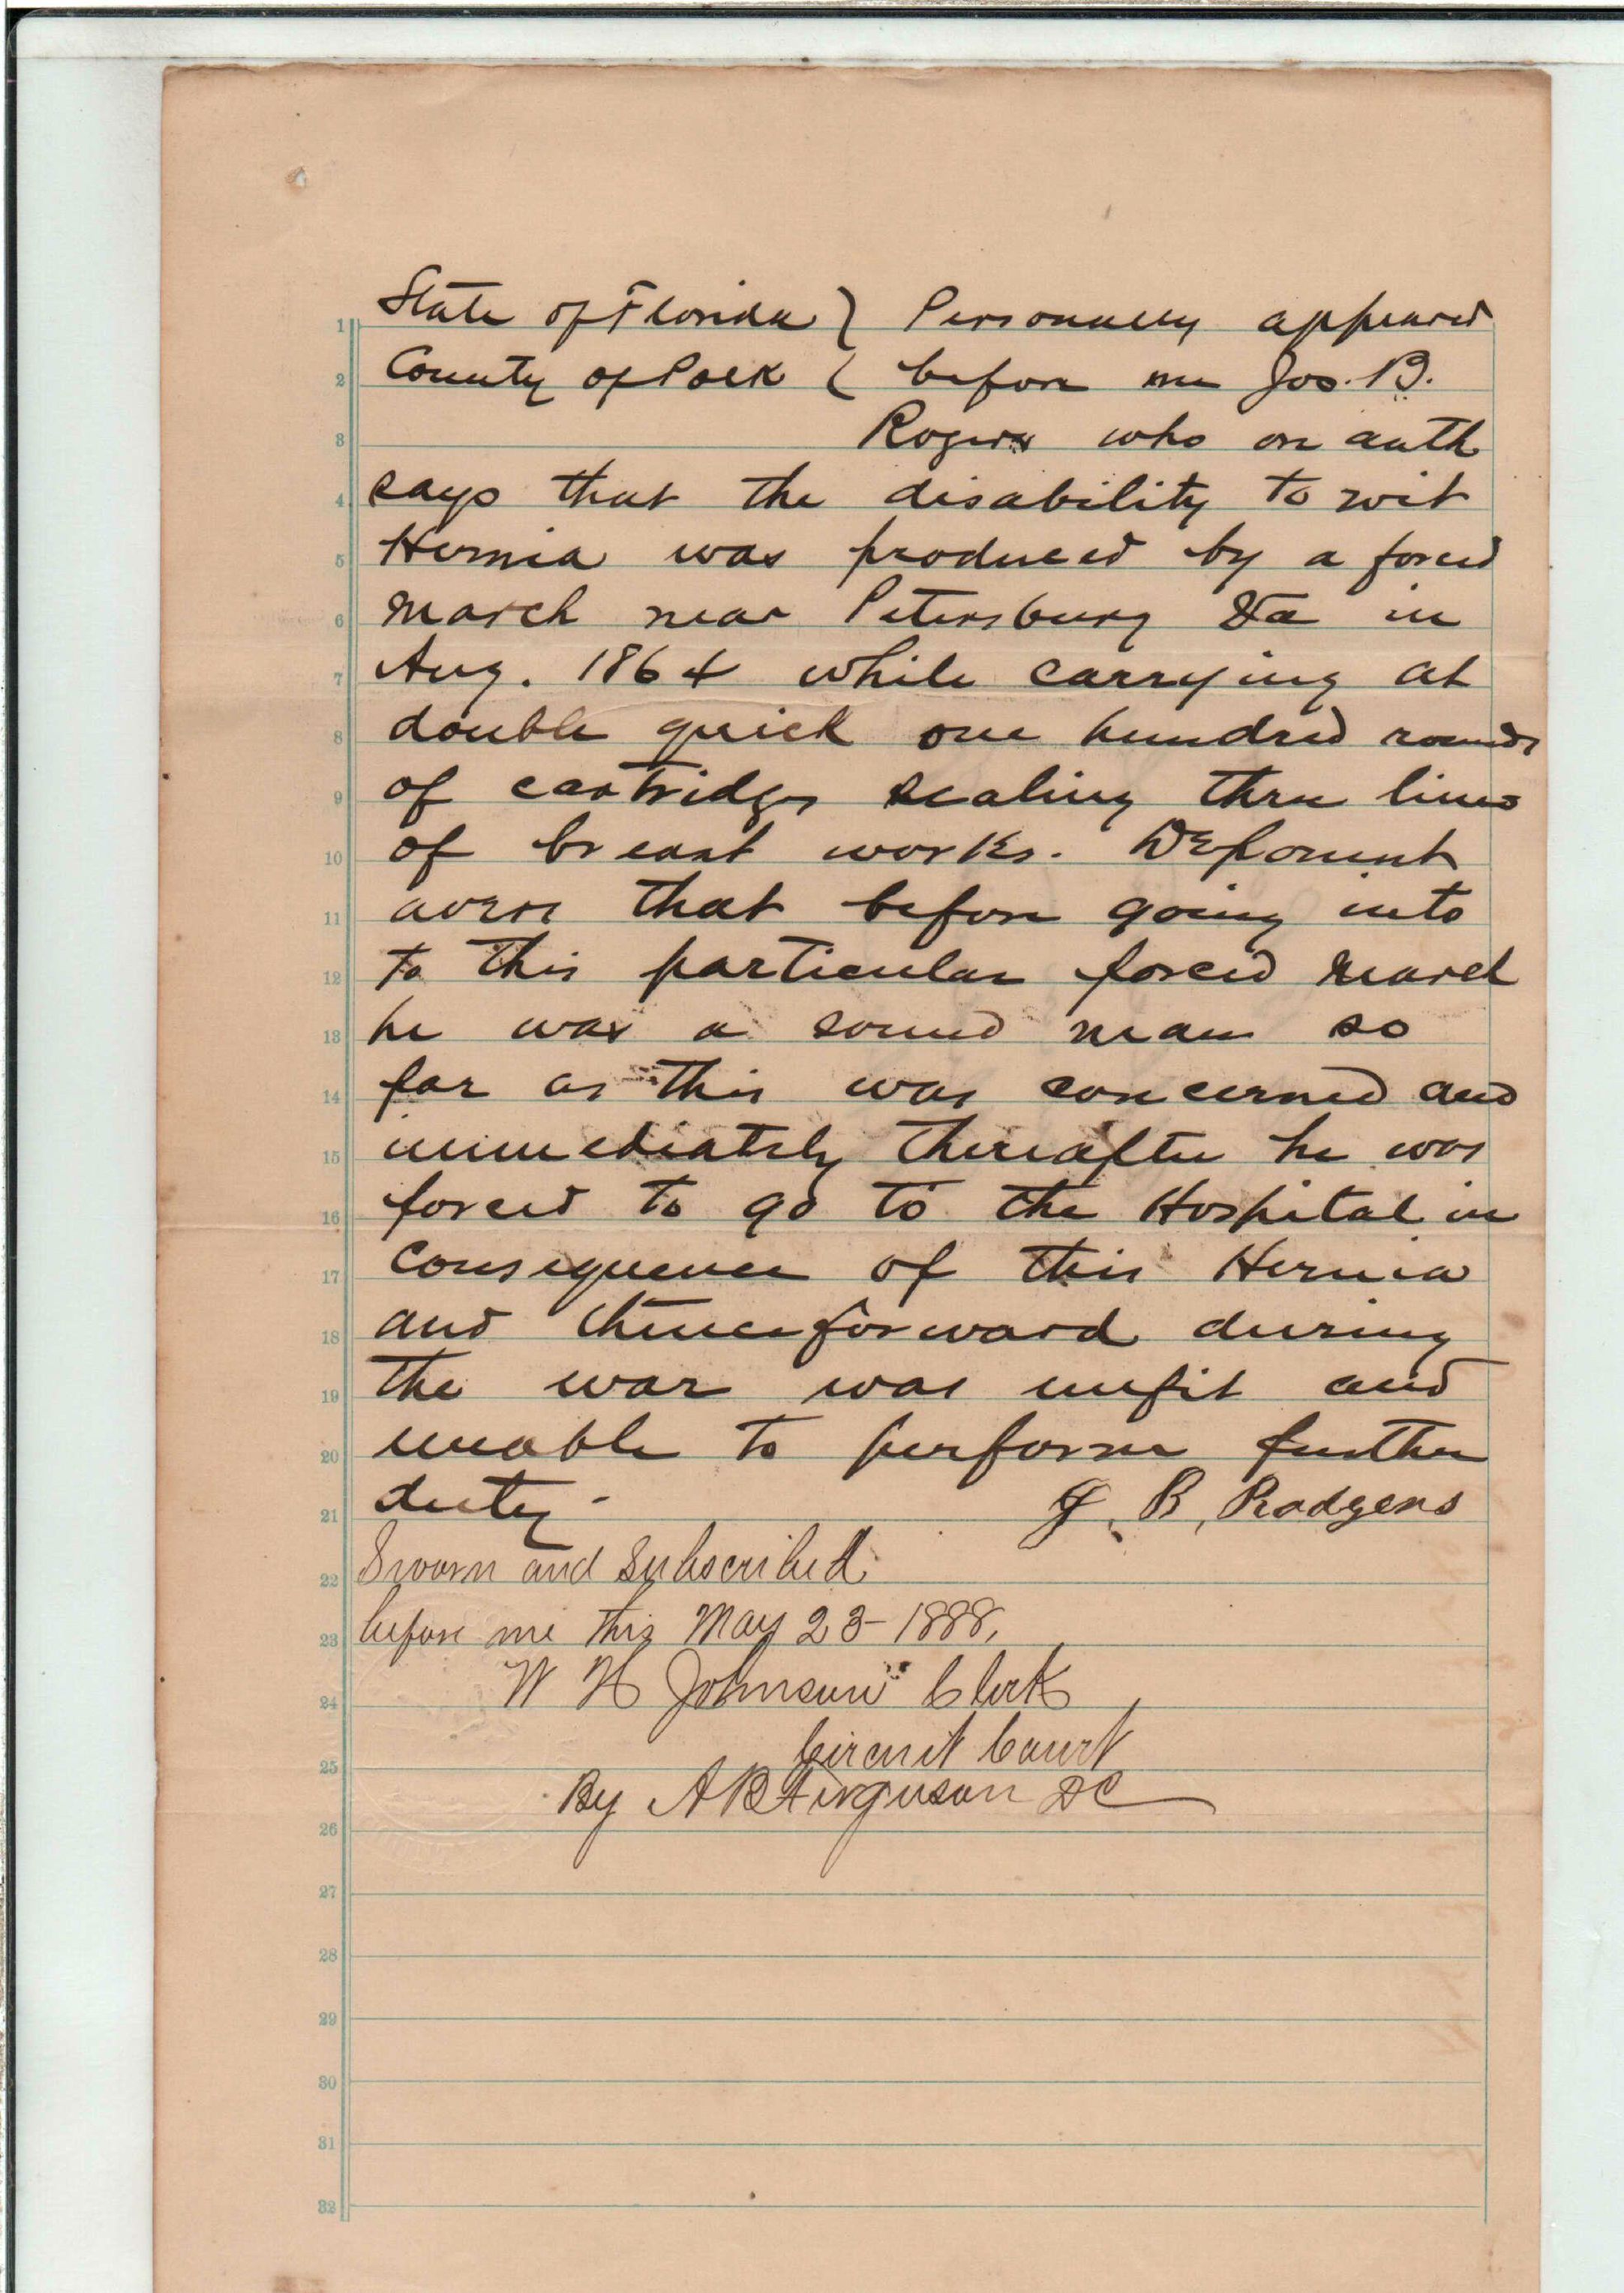 1 State of Florida } Personally appeared
2 County of Polk { before me Jos. B.
3 Rogers who on auth
4 says that the disability to wit
5 Hernia was produced by a forced
6 march near Petersburg Va in
7 Aug. 1864 while carrying at
8 double quick one hundred rounds
9 of cartridges scaling three lines
10 of breast works. Deponent
11 avers that before going into
12 to this particular forced march
13 he was a sound man so
14 far as this was concerned and
15 immediately thereafter he was
16 forced to go to the Hospital in
17 consequence of this Hernia
18 and thenceforward during
19 the war was unfit and
20 unable to perform further
21 duty - J. B, Rodgers
22 Sworn and Subscribed
23 before me this May 23 - 1888,
24 W H Johnson Clerk
Circuit Court
25
By A B Ferguson DC
26
27
28
29
30
31
32